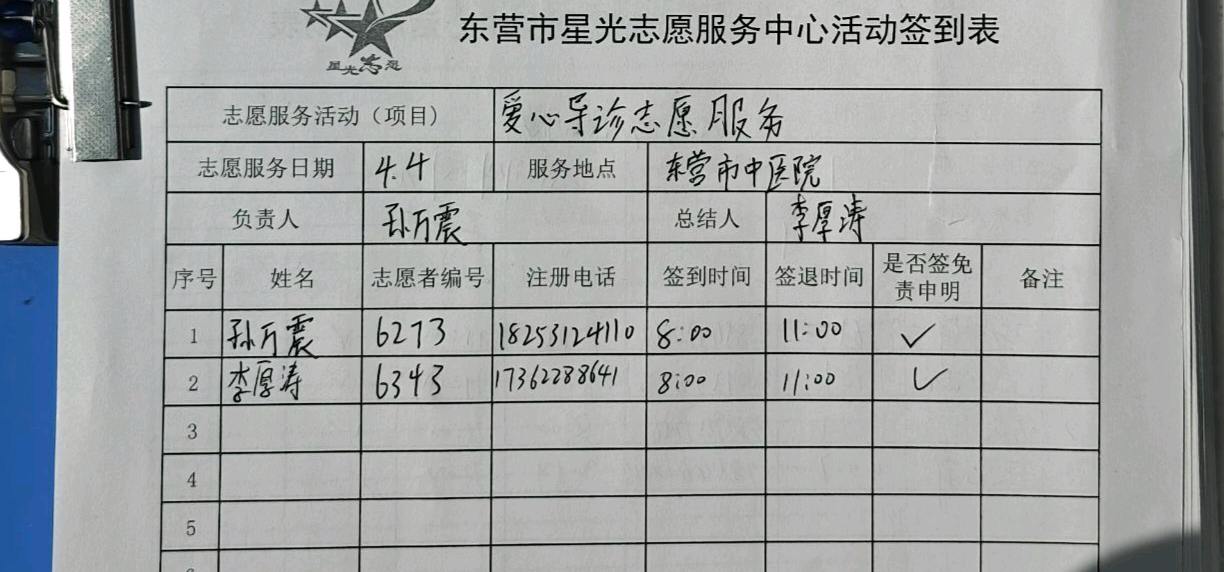 星光志愿
东营市星光志愿服务中心活动签到表
志愿服务活动（项目） 爱心导诊志愿服务
志愿服务日期 4.4 服务地点 东营市中医院
负责人 孙万震 总结人 李厚涛
序号 姓名 志愿者编号 注册电话 签到时间 签退时间 是否签免责申明 备注
1 孙万震 6273 18253124110 8:00 11:00 ✓
2 李厚涛 6343 17362288641 8:00 11:00 ✓
3
4
5